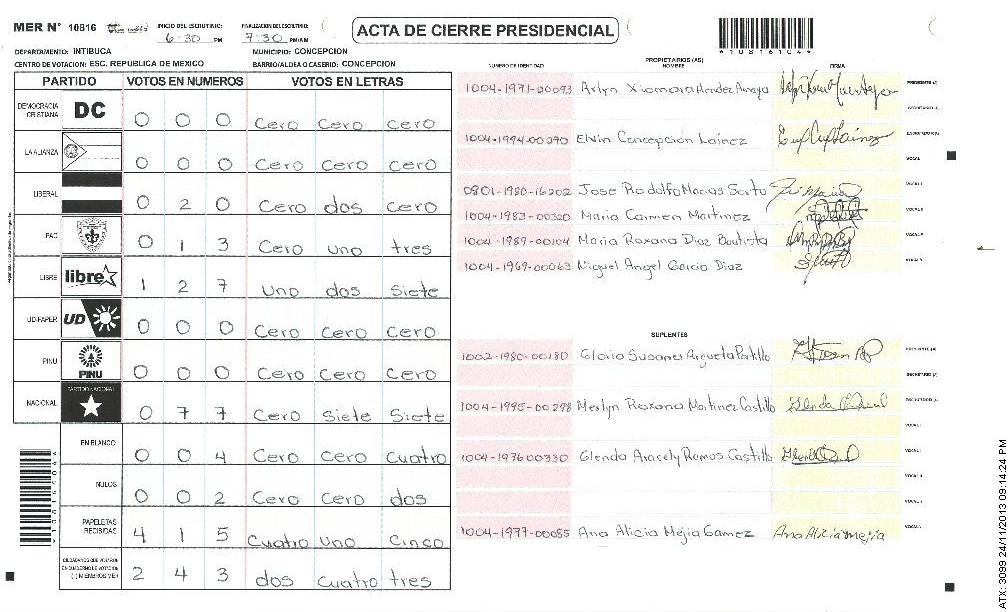 MER N° 10816 INICIO DEL ESCRUTINIO: 6:30 PM FINALIZACION DEL ESCRUTINIO: 7:30 PM/AM
ACTA DE CIERRE PRESIDENCIAL
DEPARTAMENTO: INTIBUCA MUNICIPIO: CONCEPCION
CENTRO DE VOTACION: ESC. REPUBLICA DE MEXICO BARRIO/ALDEA O CASERIO: CONCEPCION
PARTIDO VOTOS EN NUMEROS VOTOS EN LETRAS
DEMOCRACIA CRISTIANA DC 0 0 0 Cero Cero Cero
LA ALIANZA 0 0 0 Cero Cero Cero
LIBERAL 0 2 0 Cero dos cero
PAC 0 1 3 Cero uno tres
LIBRE libre 1 2 7 uno dos siete
UD/FAPER UD 0 0 0 Cero Cero Cero
PINU PINU 0 0 0 Cero Cero Cero
NACIONAL PARTIDO NACIONAL 0 7 7 Cero Siete Siete
EN BLANCO 0 0 4 Cero Cero Cuatro
NULOS 0 0 2 Cero Cero dos
PAPELETAS RECIBIDAS 4 1 5 Cuatro uno Cinco
CIUDADANOS QUE VOTARON EN CUADERNO DE VOTACION (+) MIEMBROS MER 2 4 3 dos Cuatro tres
PROPIETARIOS (AS)
NUMERO DE IDENTIDAD NOMBRE FIRMA
1004-1971-00093 Arlyn Xiomara Mendez Amaya PRESIDENTE (A)
SECRETARIO (A)
1004-1994-00290 Elvin Concepcion Lainez ESCRUTADOR (A)
VOCAL I
0801-1980-16202 Jose Rodolfo Macias Sorto VOCAL II
1004-1983-00320 Maria Carmen Martinez VOCAL III
1004-1989-00104 Maria Roxana Diaz Bautista VOCAL IV
1004-1969-00063 Miguel Angel Garcia Diaz VOCAL V
SUPLENTES
1002-1980-00180 Gloria Suyapa Argueta Portillo PRESIDENTE (A)
SECRETARIO (A)
1004-1995-00298 Merlyn Roxana Martinez Castillo ESCRUTADOR (A)
VOCAL I
1004-1976 00330 Glenda Aracely Ramos Castillo VOCAL II
VOCAL III
VOCAL IV
1004-1977-00085 Ana Alicia Mejia Gamez Ana Alicia mejia VOCAL V
*10816104*
ATX: 3099 24/11/2013 09:14:24 PM